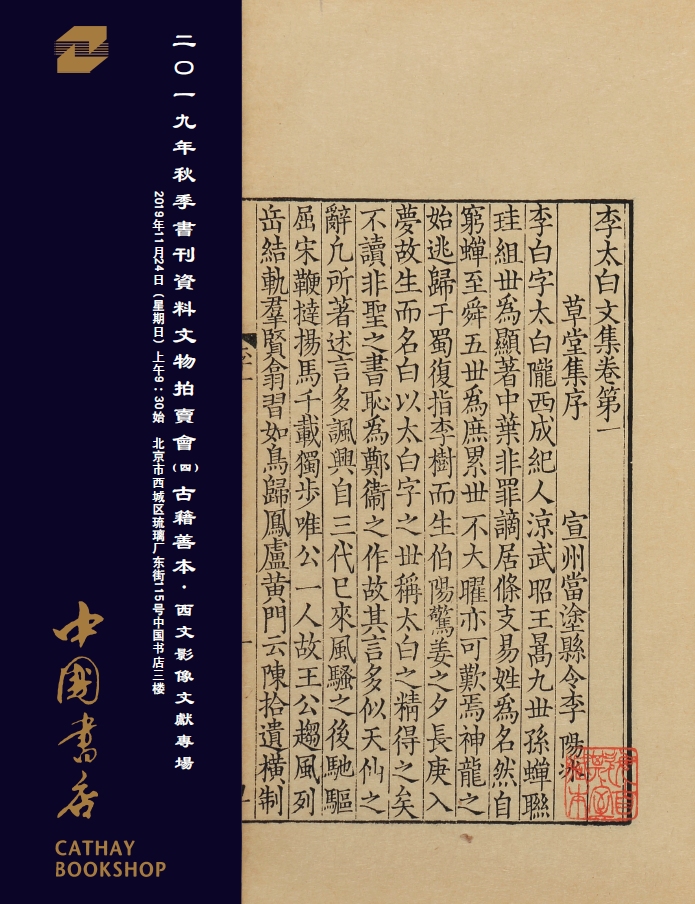 二〇一九年秋季書刊資料文物拍賣會（四）古籍善本·西文影像文獻專場
2019年11月24日（星期日）上午9：30始 北京市西城区琉璃厂东街115号中国书店三楼
中國書店
CATHAY
BOOKSHOP
李太白文集卷第一
草堂集序 宣州當塗縣令李 陽冰
李白字太白隴西成紀人涼武昭王暠九世孫蟬聯
珪組世爲顯著中葉非罪謫居條支易姓爲名然自
窮蟬至舜五世爲庶累世不大曜亦可歎焉神龍之
始逃歸于蜀復指李樹而生伯陽驚姜之夕長庚入
夢故生而名白以太白字之世稱太白之精得之矣
不讀非聖之書恥爲鄭衞之作故其言多似天仙之
辭凡所著述言多諷興自三代已來風騷之後馳驅
屈宋鞭撻揚馬千載獨步唯公一人故王公趨風列
岳結軌羣賢翕習如鳥歸鳳盧黄門云陳拾遺橫制